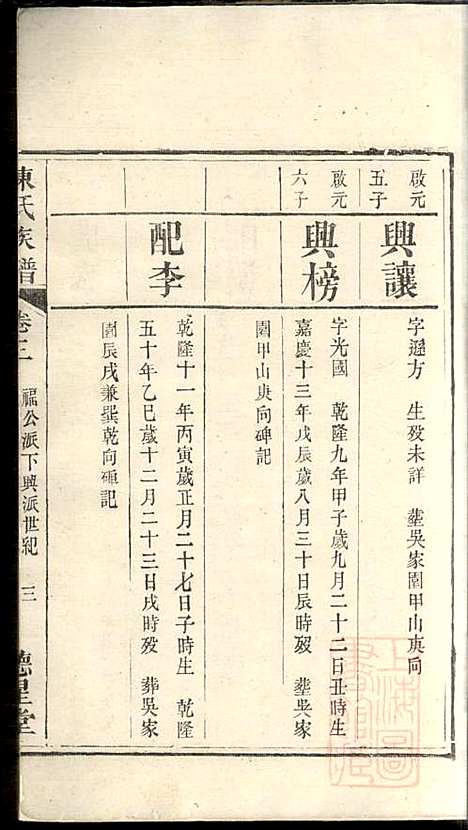 啟元
五子
興讓
字遜方 生歿未詳 塟吳家園甲山庚向
啟元
六子
興榜
字光國 乾隆九年甲子歲九月二十二日丑時生
嘉慶十三年戊辰歲八月三十日辰時歿 塟吳家
園甲山庚向碑記
配李
乾隆十一年丙寅歲正月二十七日子時生 乾隆
五十年乙巳歲十二月二十三日戌時歿 葬吳家
園辰戌兼撰乾向碑記
陳氏族譜 卷三 福公派下興派世紀 三 德星堂
上海圖